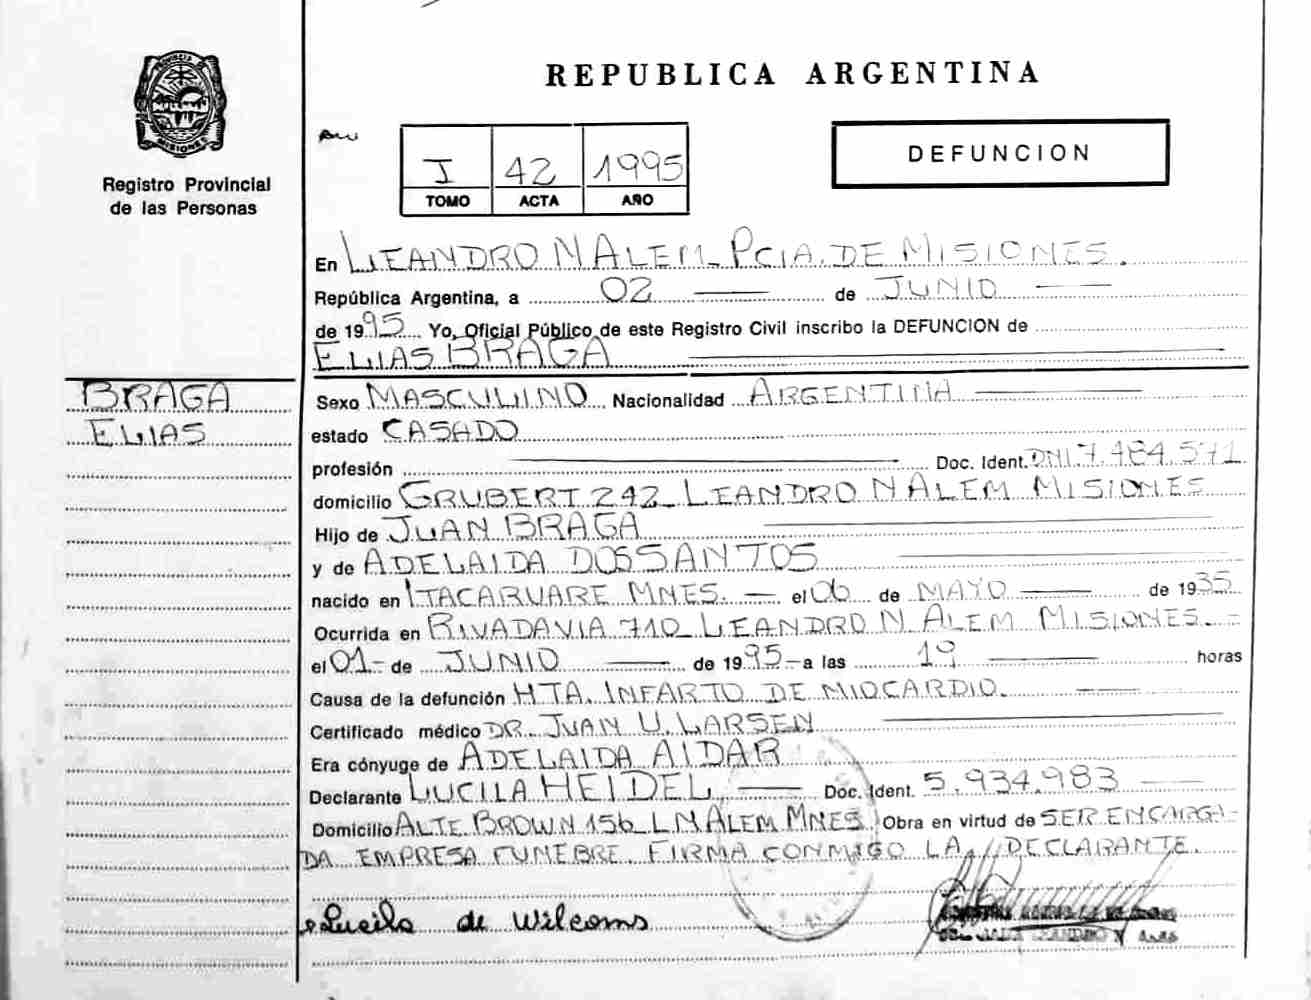 REPUBLICA ARGENTINA
PROVINCIA DE
MISIONES
Registro Provincial
de las Personas
I 42 1995
TOMO ACTA AÑO
DEFUNCION
En LEANDRO N ALEM PCIA. DE MISIONES.
República Argentina, a 02 de JUNIO
de 1995 Yo, Oficial Público de este Registro Civil inscribo la DEFUNCION de
ELIAS BRAGA
BRAGA
ELIAS
Sexo MASCULINO Nacionalidad ARGENTINA
estado CASADO
profesión Doc. Ident. DNI. 7.484.571
domicilio GRUBERT 242 LEANDRO N ALEM MISIONES
Hijo de JUAN BRAGA
y de ADELAIDA DOSSANTOS
nacido en ITACARUARE MNES. el 06 de MAYO de 1935
Ocurrida en RIVADAVIA 710 LEANDRO N ALEM MISIONES.
el 01 de JUNIO de 1995 a las 19 horas
Causa de la defunción HTA. INFARTO DE MIOCARDIO.
Certificado médico DR. JUAN U. LARSEN
Era cónyuge de ADELAIDA AIDAR
Declarante LUCILA HEIDEL Doc. Ident. 5.934.983
Domicilio ALTE BROWN 156 L N ALEM MNES Obra en virtud de SER ENCARGA-
DA EMPRESA FUNEBRE. FIRMA CONMIGO LA DECLARANTE.
Lucila de Wilcoms